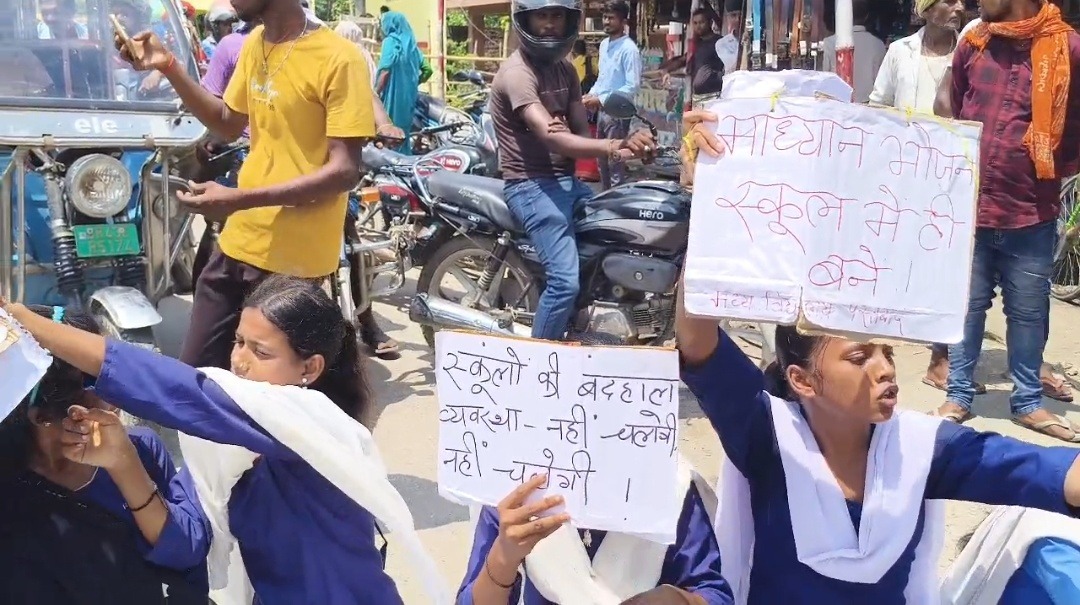 ele
HERO
HERO
माध्यान भोजन
स्कूल में ही
बने।
मध्य विद्यालय
स्कूलों की बदहाल
व्यवस्था - नहीं चलेगी
नहीं चलेगी ।